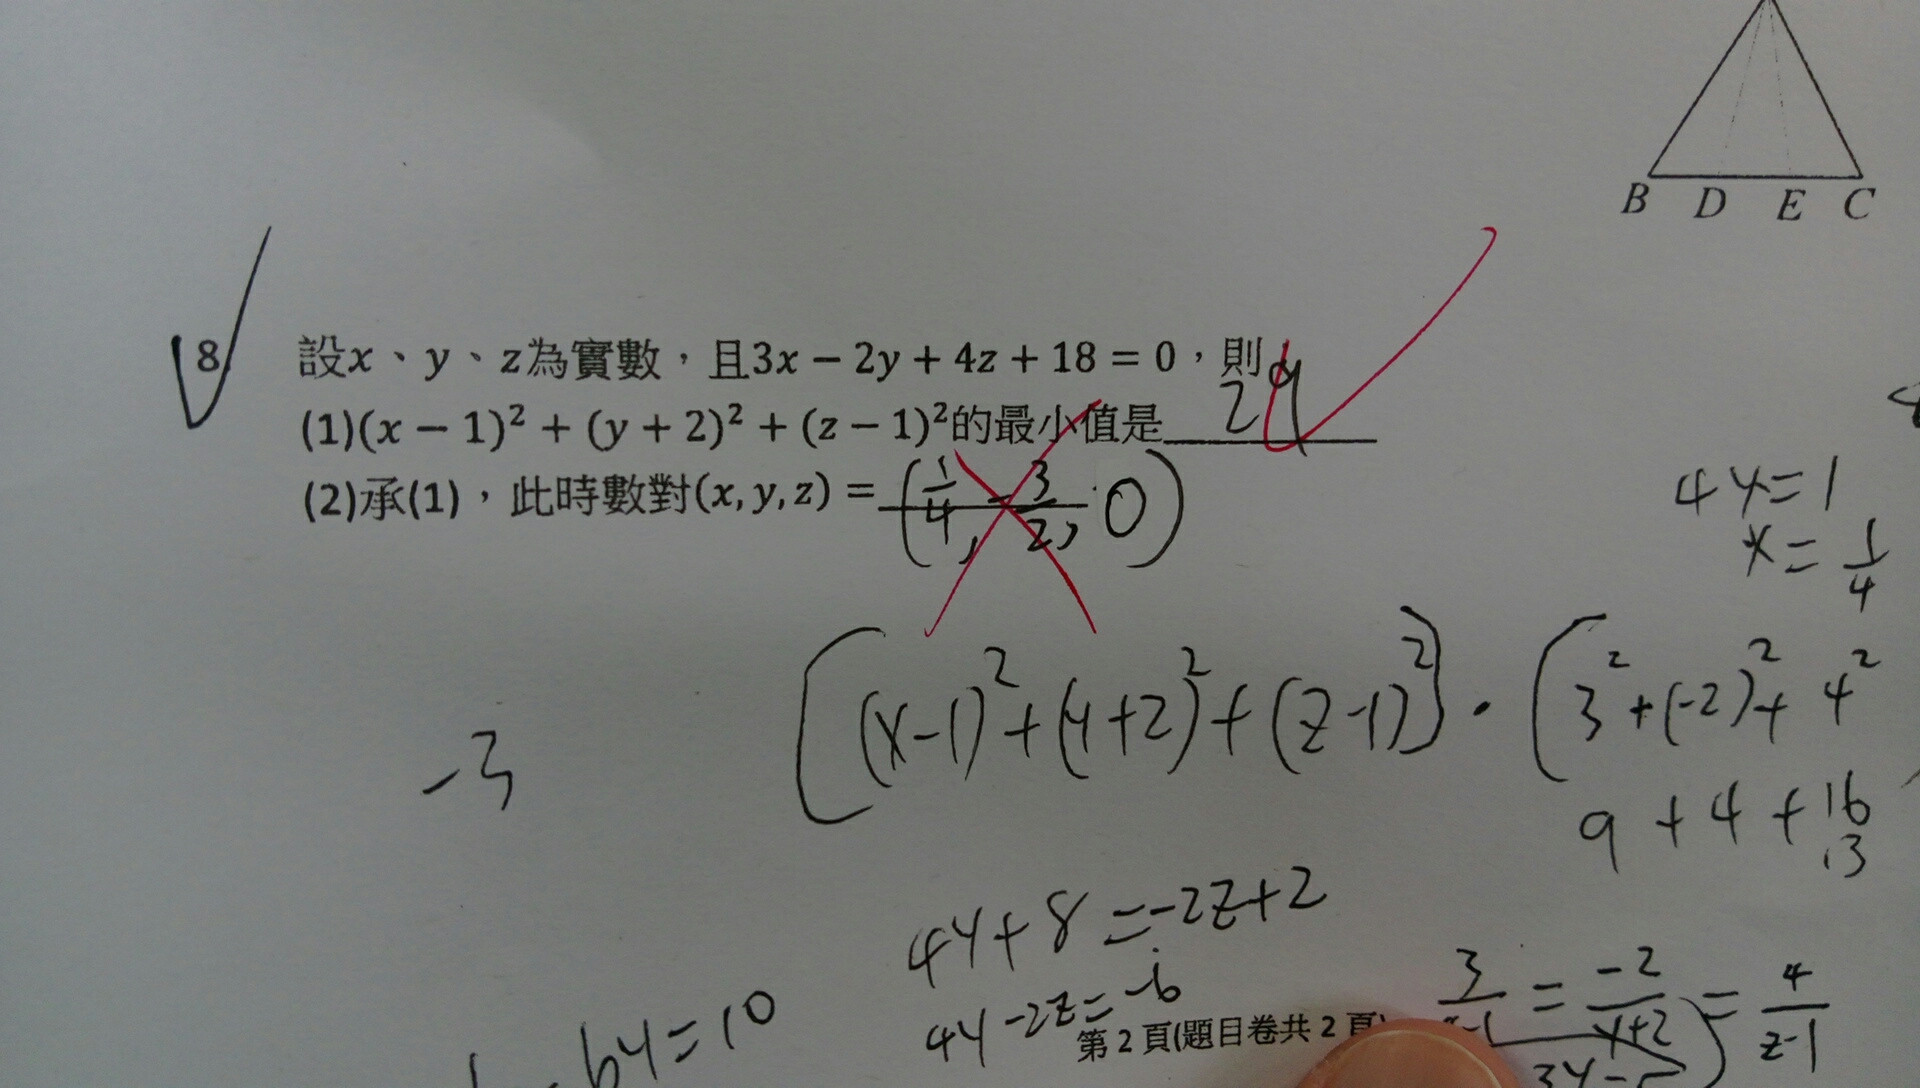 B D E C
8.
設x、y、z為實數，且3x − 2y + 4z + 18 = 0，則
(1)(x − 1)² + (y + 2)² + (z − 1)²的最小值是 29
(2)承(1)，此時數對(x, y, z) = (1/4, -3/2, 0)
4y=1
x=1/4
[(x-1)²+(y+2)²+(z-1)²]·(3²+(-2)²+4²
-3
9+4+16
13
4y+8=-2z+2
4y-2z=-6
3/x-1=-2/y+2=4/z-1
6y=10
第2頁(題目卷共2頁)